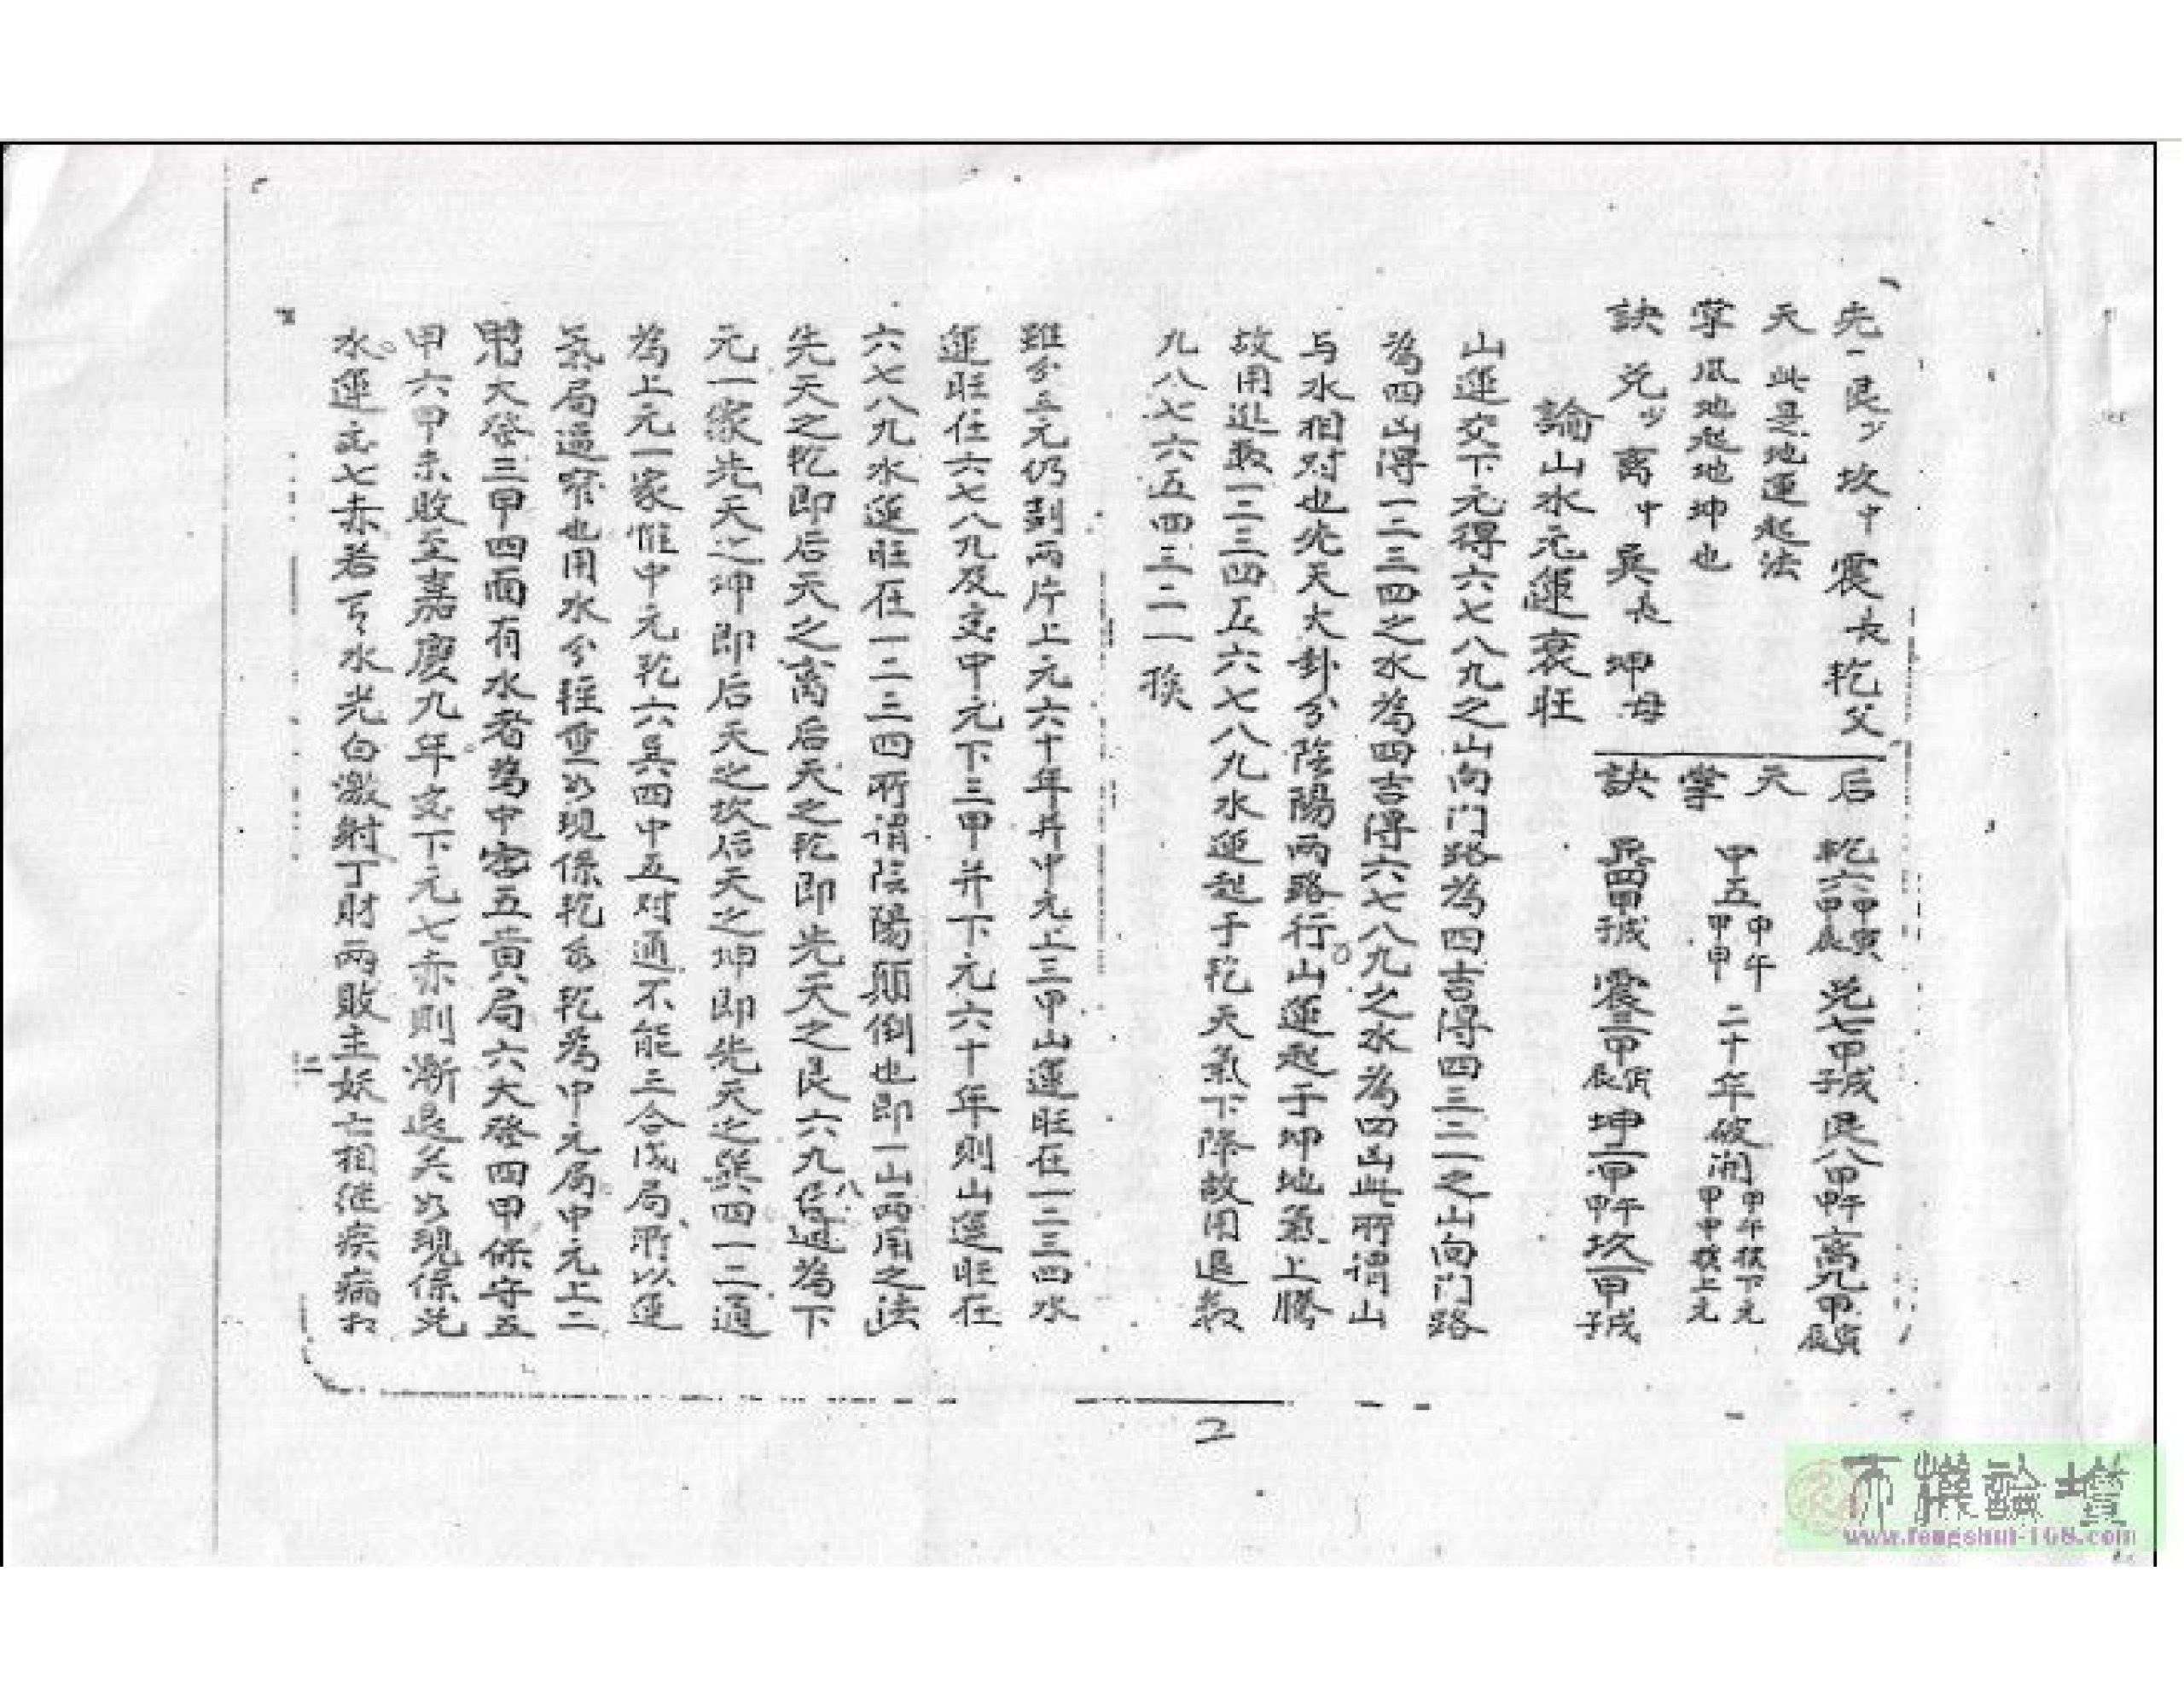 先 一艮少 坎中 震長 乾父
天 此是地運起法
掌 風地起地坤也
訣 兑少 离中 巽長 坤母
后 乾六甲寅甲辰 兑七甲子甲戌 艮八甲午甲申 离九甲寅甲辰
天
掌 中五甲午甲申 二十年破開 甲午撥下元甲申撥上元
訣 巽四甲子甲戌 震三甲寅甲辰 坤二甲午甲申 坎一甲子甲戌
論山水元運衰旺
山運交下元得六七八九之山向门路為四吉得四三二一之山向门路
為四凶得一二三四之水為四吉得六七八九之水為四凶此所谓山
与水相对也先天大卦分陰陽兩路行山運起于坤地氣上騰
故用進数一二三四五六七八九水運起于乾天氣下降故用退数
九八七六五四三二一
雖分三元仍到兩片上元六十年并中元上三甲山運旺在一二三四水
運旺在六七八九及交甲元下三甲并下元六十年則山運旺在
六七八九水運旺在一二三四所谓陰陽顛倒也即一山兩用之法
先天之乾即后天之离后天之乾即先天之艮六九八通為下
元一家先天之坤即后天之坎后天之坤即先天之巽四一二通
為上元一家惟中元乾六巽四中五对通不能三合成局所以運
氣局逼窄也用水分注重如現係乾乾為中元局中元上二
大發三甲四面有水者為中宫五黄局六大發四甲係守五
甲六甲未敗至嘉慶九年交下元七赤則漸退矣如現係兑
水運交七赤若下水光白激射丁財兩敗主妖亡相继疾病
二
2
天機論壇
www.fengshui-168.com